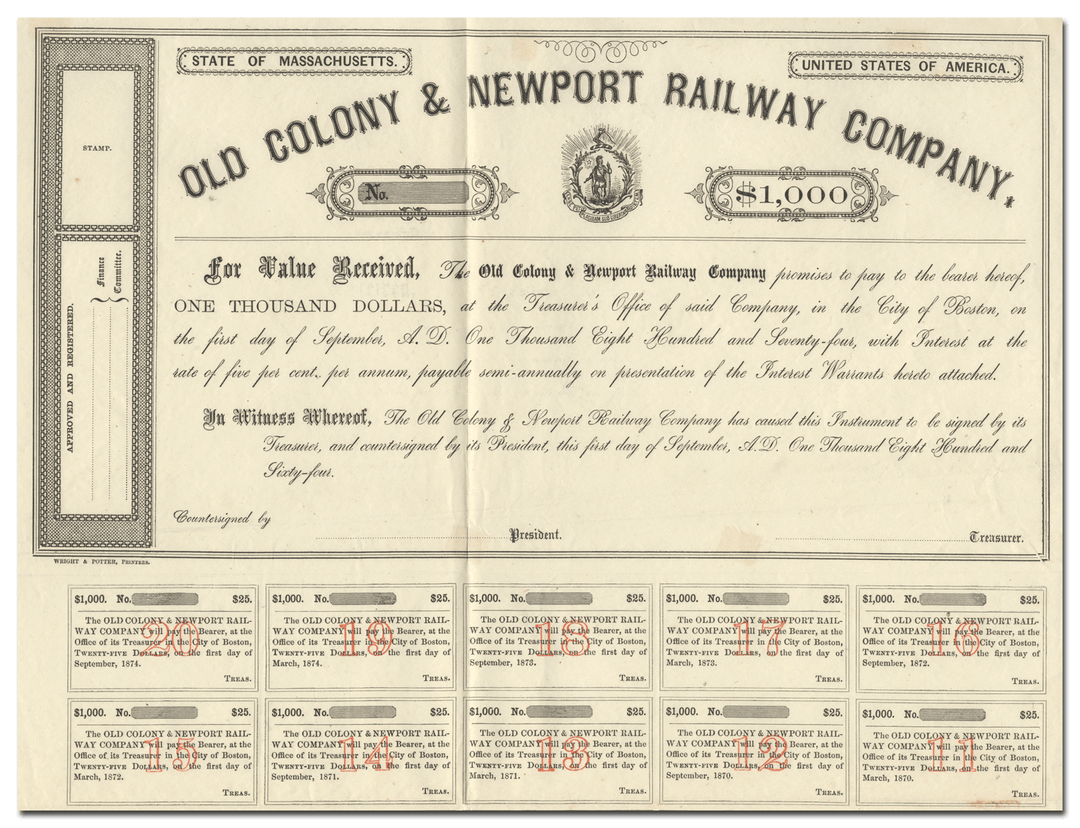 STATE OF MASSACHUSETTS.
UNITED STATES OF AMERICA.
OLD COLONY & NEWPORT RAILWAY COMPANY.
No.
$1,000
STAMP.
APPROVED AND REGISTERED.
Finance
Committee.
For Value Received, The Old Colony & Newport Railway Company promises to pay to the bearer hereof,
ONE THOUSAND DOLLARS, at the Treasurer's Office of said Company, in the City of Boston, on
the first day of September, A. D. One Thousand Eight Hundred and Seventy-four, with Interest at the
rate of five per cent. per annum, payable semi-annually on presentation of the Interest Warrants hereto attached.
In Witness Whereof, The Old Colony & Newport Railway Company has caused this Instrument to be signed by its
Treasurer, and countersigned by its President, this first day of September, A.D. One Thousand Eight Hundred and
Sixty-four.
Countersigned by
President.
Treasurer.
WRIGHT & POTTER, PRINTERS.
$1,000. No. $25.
The OLD COLONY & NEWPORT RAIL-
WAY COMPANY will pay the Bearer, at the
Office of its Treasurer in the City of Boston,
TWENTY-FIVE DOLLARS, on the first day of
September, 1874.
TREAS.
20
$1,000. No. $25.
The OLD COLONY & NEWPORT RAIL-
WAY COMPANY will pay the Bearer, at the
Office of its Treasurer in the City of Boston,
TWENTY-FIVE DOLLARS, on the first day of
March, 1874.
TREAS.
19
$1,000. No. $25.
The OLD COLONY & NEWPORT RAIL-
WAY COMPANY will pay the Bearer, at the
Office of its Treasurer in the City of Boston,
TWENTY-FIVE DOLLARS, on the first day of
September, 1873.
TREAS.
18
$1,000. No. $25.
The OLD COLONY & NEWPORT RAIL-
WAY COMPANY will pay the Bearer, at the
Office of its Treasurer in the City of Boston,
TWENTY-FIVE DOLLARS, on the first day of
March, 1873.
TREAS.
17
$1,000. No. $25.
The OLD COLONY & NEWPORT RAIL-
WAY COMPANY will pay the Bearer, at the
Office of its Treasurer in the City of Boston,
TWENTY-FIVE DOLLARS, on the first day of
September, 1872.
TREAS.
16
$1,000. No. $25.
The OLD COLONY & NEWPORT RAIL-
WAY COMPANY will pay the Bearer, at the
Office of its Treasurer in the City of Boston,
TWENTY-FIVE DOLLARS, on the first day of
March, 1872.
TREAS.
15
$1,000. No. $25.
The OLD COLONY & NEWPORT RAIL-
WAY COMPANY will pay the Bearer, at the
Office of its Treasurer in the City of Boston,
TWENTY-FIVE DOLLARS, on the first day of
September, 1871.
TREAS.
14
$1,000. No. $25.
The OLD COLONY & NEWPORT RAIL-
WAY COMPANY will pay the Bearer, at the
Office of its Treasurer in the City of Boston,
TWENTY-FIVE DOLLARS, on the first day of
March, 1871.
TREAS.
13
$1,000. No. $25.
The OLD COLONY & NEWPORT RAIL-
WAY COMPANY will pay the Bearer, at the
Office of its Treasurer in the City of Boston,
TWENTY-FIVE DOLLARS, on the first day of
September, 1870.
TREAS.
12
$1,000. No. $25.
The OLD COLONY & NEWPORT RAIL-
WAY COMPANY will pay the Bearer, at the
Office of its Treasurer in the City of Boston,
TWENTY-FIVE DOLLARS, on the first day of
March, 1870.
TREAS.
11